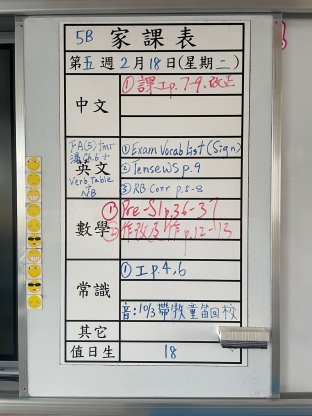 5B 家課表
第五週2月18日(星期二)
中文
①課工p.7-9.改正
FA(5) tmr
英文
Verb Table
NB
①Exam Vocab List (Sign)
②Tense WS p.9
③RB Corr p.5-8
數學
①Pre-S1 p.36-37
②作改及作p.12-13
常識
①工p.4,6
音:10/3帶牧童笛回校
其它
值日生
18